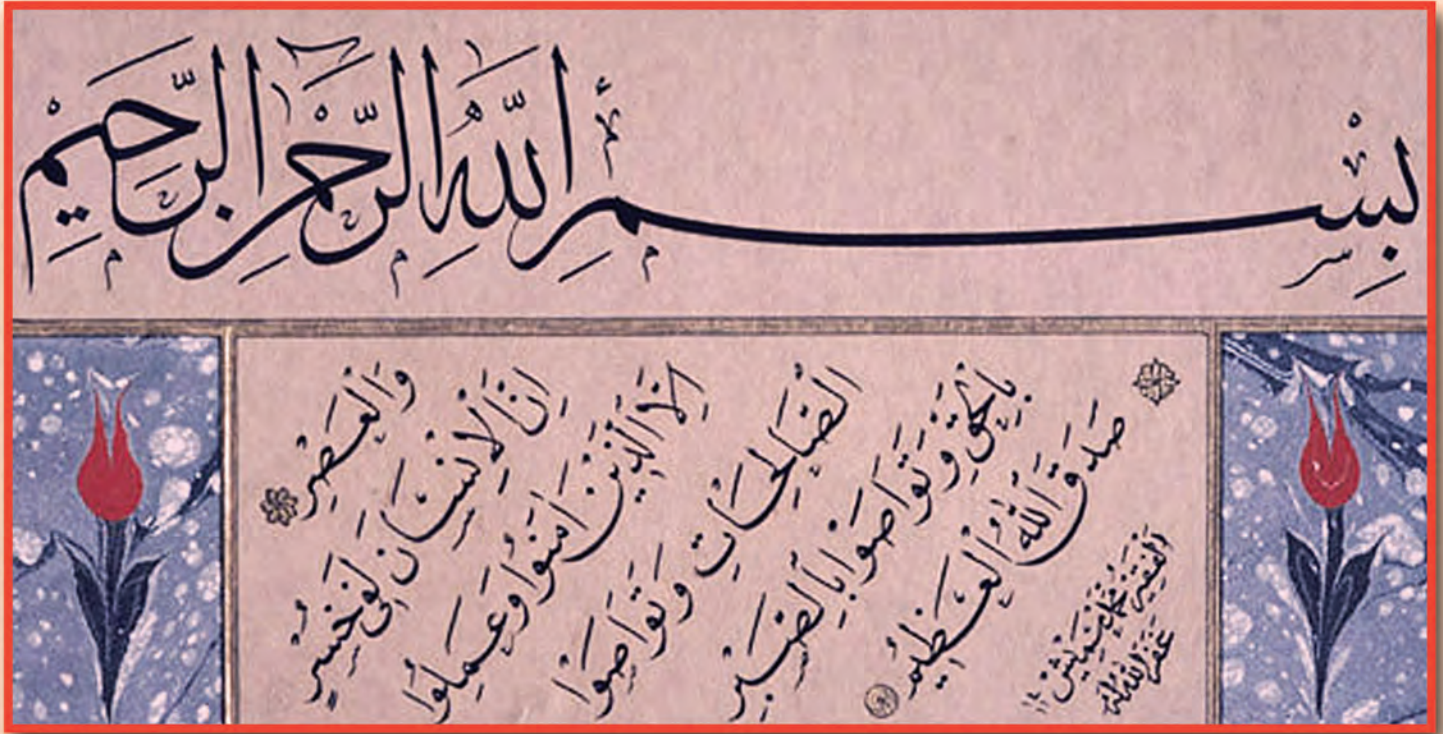 بِسْمِ اللَّهِ الرَّحْمٰنِ الرَّحِيمِ
وَالْعَصْرِ
اِنَّ الْاِنْسَانَ لَفِى خُسْرٍ
اِلَّا الَّذِينَ اٰمَنُوا وَعَمِلُوا
الصَّالِحَاتِ وَتَوَاصَوْا
بِالْحَقِّ وَتَوَاصَوْا بِالصَّبْرِ
صَدَقَ اللّٰهُ الْعَظِيمُ
الفقير محمد
غفر الله له